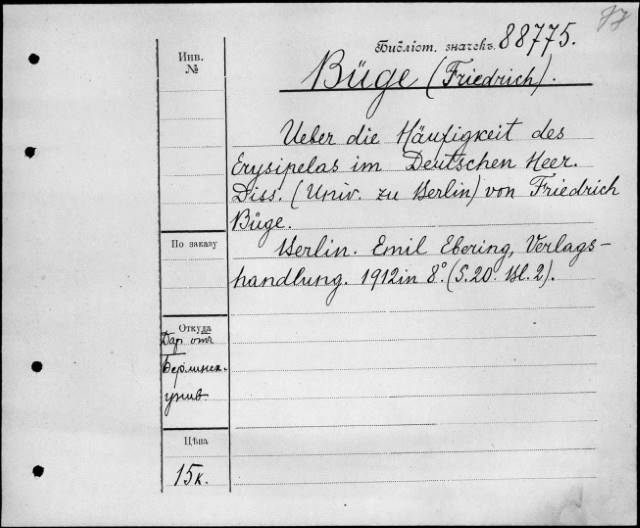 Библіот. значекъ. 88775.
Инв.
№
Büge (Friedrich).
Ueber die Häufigkeit des
Erysipelas im Deutschen Heer.
Diss. (Univ. zu Berlin) von Friedrich
Büge.
По заказу
Berlin. Emil Ebering, Verlags-
handlung. 1912 in 8°. (S. 20. Bl. 2).
Откуда
Дар отъ
Берлинск.
унив.
Цѣна
15к.